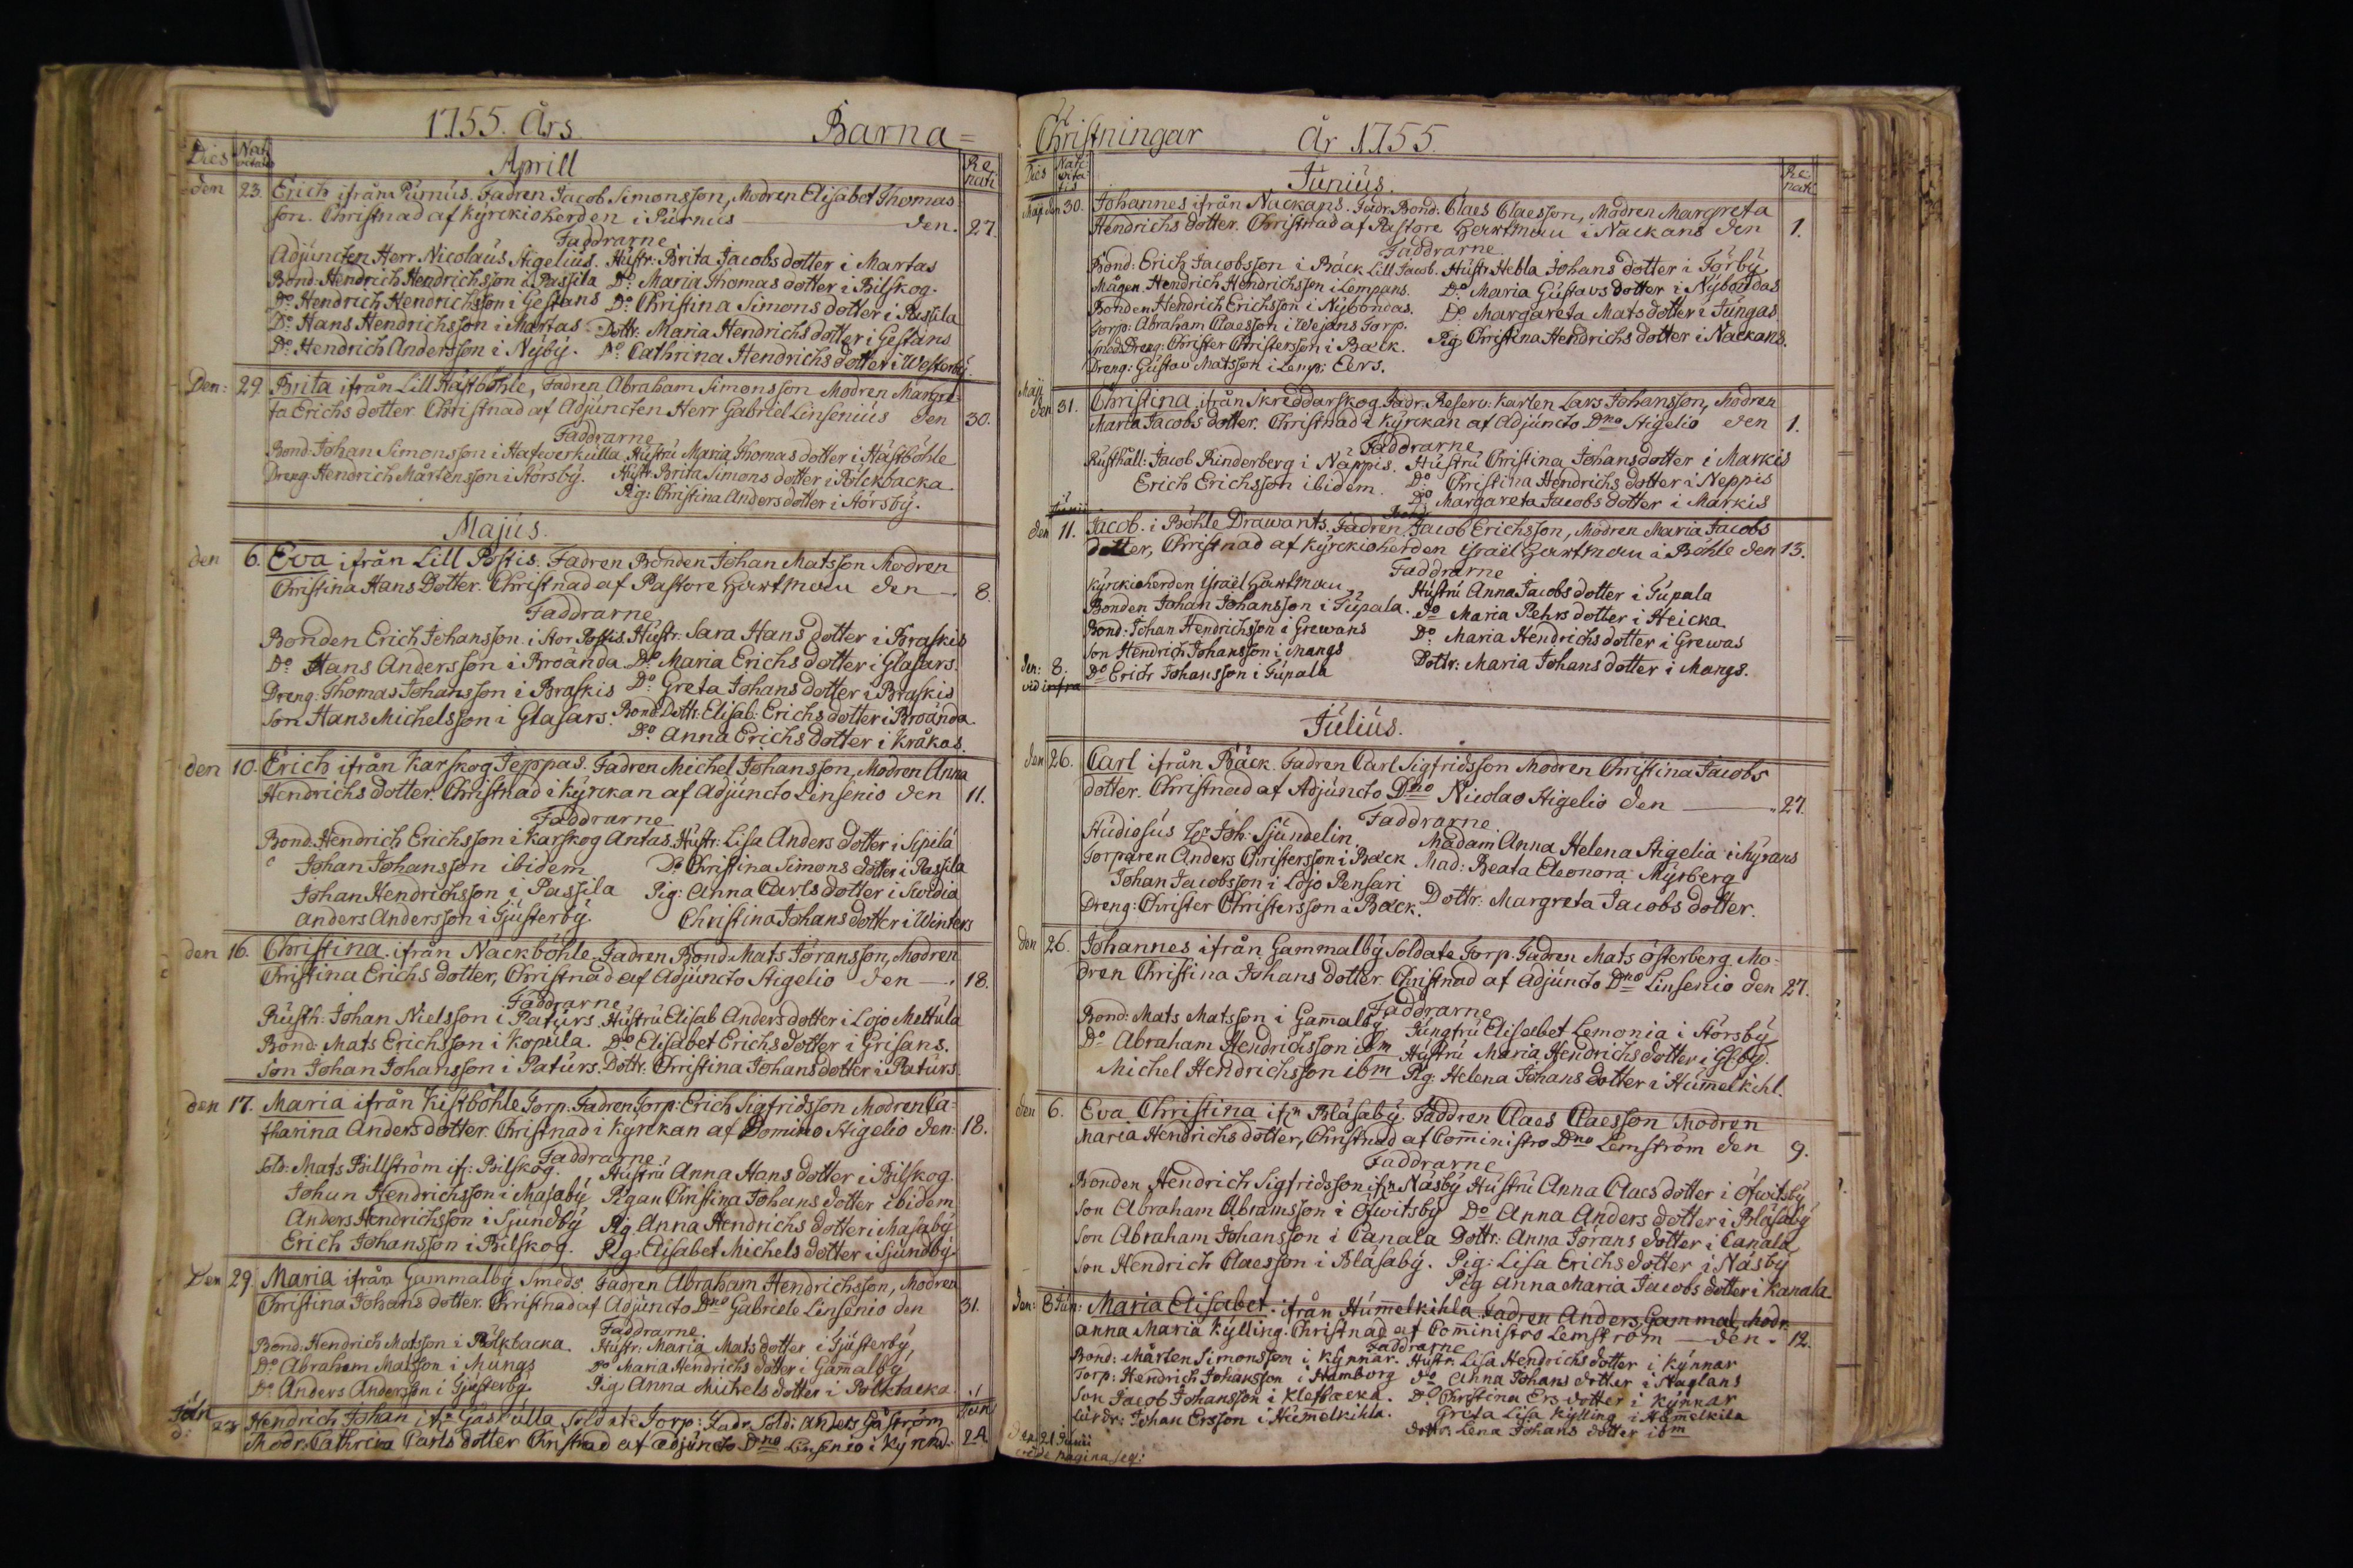 1755. Års Barna=
Dies Nati vitatis Aprill Re nati
den 23. Erich ifrån Purnus. Fadren Jacob Simonsson, Modren Elisabet Thomas
son. Christnad af Kyrckioherden i Purnus den. 27.
Faddrarne
Adjuncten Herr Nicolaus Stigelius. Hustr: Brita Jacobs dotter i Martas
Bond: Hendrich Hendrichsson i Passila Do: Maria Thomas dotter i Bilskog.
Do Hendrich Hendrichsson i Gestans Do: Christina Simons dotter i Passila
Do: Hans Hendrichsson i Martas Dottr: Maria Hendrichs dotter i Gestans
Do: Hendrich Andersson i Nyby. Do: Cathrina Hendrichs dotter i Westerby.
Den: 29. Brita ifrån Lill Hästböhle, Fadren Abraham Simonsson Modren Margre=
ta Erichs dotter Christnad af Adjuncten Herr Gabriel Linsenius den 30.
Faddrarne
Bond: Johan Simonsson i Hafwerkulla Hustru Maria Thomas dotter i Hästböhle
Dreng Hendrich Mårtensson i Störsby. Hustr: Brita Simons dotter i Bölckbacka
Pig: Christina Anders dotter i Störsby.
Majus.
den 6. Eva ifrån Lill Postis. Fadren Bonden Johan Matsson Modren
Christina Hans Dotter. Christnad af Pastore Hartman den 8.
Faddrarne
Bonden Erich Johansson i Stor Postis. Hustr: Sara Hans dotter i Braskis
Do Hans Andersson i Broända Do: Maria Erichs dotter i Glasars.
Dreng: Thomas Johansson i Braskis Do: Greta Johans dotter i Braskis
Son Hans Michelsson i Glasars. Bond: Dottr: Elisab: Erichs dotter i Broända.
Do: Anna Erichs dotter i Kråkas.
den 10. Erich ifrån Karskog Jeppas. Fadren Michel Johansson, Modren Anna
Hendrichs dotter. Christnad i Kyrckan af Adjuncto Linsenio den 11.
Faddrarne
Bond: Hendrich Erichsson i Karskog Antas. Hustr: Lisa Anders dotter i Sipilä
Johan Johansson ibidem Do: Christina Simons dotter i Passila
Johan Hendrichsson i Passila Pig: Anna Carls dotter i Swidia
Anders Andersson i Gjusterby. Christina Johans dotter i Winters
den 16. Christina. ifrån Näckböhle. Fadren Bond: Mats Jöransson, Modren
Christina Erichs dotter, Christnad af Adjuncto Stigelio den 18.
Faddrarne
Rusth: Johan Nielsson i Paturs. Hustru Elisab Anders dotter i Lojo Mettula
Bond: Mats Erichsson i Kopula. Do Elisabet Erichs dotter i Grisans.
Son Johan Johansson i Paturs. Dottr: Christina Johans dotter i Paturs.
den 17. Maria ifrån Kistböhle Torp. Fadren Torp: Erich Sigfridsson Modren Ca=
tharina Anders dotter. Christnad i Kyrckan af Domino Stigelio den: 18.
Faddrarne
Sold: Mats Billström if: Bilskog. Hustru Anna Hans dotter i Bilskog.
Johan Hendrichsson i Masaby Pigan Christina Johans dotter ibidem
Anders Hendrichsson i Sjundby Pig. Anna Hendrichs dotter i Masaby
Erich Johansson i Bilskog. Pig: Elisabet Michels dotter i Sjundby.
Den 29. Maria ifrån Gammalby Smeds. Fadren Abraham Hendrichsson, Modren
Christina Johans dotter. Christnad af Adjuncto Dno Gabriele Linsenio den 31.
Faddrarne
Bond: Hendrich Matsson i Bölkbacka. Hustr: Maria Mats dotter i Gjusterby,
Do: Abraham Matsson i Mungs Do Maria Hendrichs dotter i Gamalby
Do Anders Andersson i Gjusterby. Pig: Anna Michels dotter i Bölkbacka
23 Hendrich Johan if:n Gäskulla Soldate Torp: Fadr. Sold: Anders Gåström Jun
Modr: Cathrina Carls dotter Christnad af adjuncto Dno Linsenio i Kyrckn. 24
Christningar År 1755.
Dies Nati vita tis Junius. Re nati
Maij den 30. Johannes ifrån Nackans. Fadr. Bond: Claes Claesson, Modren Margreta
Hendrichs dotter. Christnad af Pastore Hartman i Nackans den 1.
Faddrarne
Bond: Erich Jacobsson i Bäck Lill Jacob. Hustr: Hebla Johans dotter i Torby
Mågen. Hendrich Hendrichsson i Lempans. Do: Maria Gustavs dotter i Nybondas
Bonden Hendrich Erichsson i Nybondas. Do Margareta Mats dotter i Jungas
Torp: Abraham Claesson i Wejans Torp. Pig Christina Hendrichs dotter i Nackans.
Smeds Dreng: Christer Christersson i Bäck.
Dreng: Gustav Matsson i Lemp: Eers.
Maij den 31. Christina ifrån Skreddarskog. Fadr: Reserv: Karlen Lars Johansson, Modren
Maria Jacobs dotter. Christnad i Kyrckan af Adjuncto Dno Stigelio den 1.
Faddrarne
Rusthåll: Jacob Rinderberg i Näppis. Hustru Christina Johansdotter i Markis
Erich Erichsson ibidem. Do: Christina Hendrichs dotter i Neppis
Do Margareta Jacobs dotter i Markis
Junii den 11. Jacob. i Böhle Drawants. Fadren Jacob Erichsson, Modren Maria Jacobs
dotter, Christnad af Kyrckioherden Israel Hartman i Böhle den 13.
Faddrarne
Kyrckioherden Israel Hartman Hustru Anna Jacobs dotter i Tupala
Bonden Johan Johansson i Tupala. Do Maria Pehrs dotter i Heicka
Bond: Johan Hendrichsson i Grewans Do Maria Hendrichs dotter i Grewas
Son Hendrich Johansson i Mangs Dottr: Maria Johans dotter i Mangs.
den: 8. Do Erich Johansson i Tupala
vid infra
Julius.
den 26. Carl ifrån Bäck. Fadren Carl Sigfridsson Modren Christina Jacobs
dotter. Christnad af Adjuncto Dno Nicolao Stigelio den 27.
Faddrarne
Studiosus Hr Joh: Sjundelin. Madam Anna Helena Stigelia i Myrans
Torparen Anders Christersson i Bäck Mad: Beata Eleonora Myrberg
Johan Jacobsson i Lojo Pensari Dottr: Margreta Jacobs dotter.
Dreng: Christer Christersson i Bäck.
den 26. Johannes ifrån Gammalby Soldate Torp. Fadren Mats Österberg. Mo=
dren Christina Johans dotter. Christnad af Adjuncto Dno Linsenio den 27.
Faddrarne
Bond: Mats Matsson i Gamalby Jungfru Elisabet Lemonia i Störsby
Do Abraham Hendrichsson ibm Hustru Maria Hendrichs dotter i
Michel Hendrichsson ibm Pig: Helena Johans dotter i Humelkihl.
den 6. Eva Christina if:n Bläsaby. Faddren Claes Claesson Modren
Maria Hendrichs dotter, Christnad af Coministro Dno Lemström den 9.
Faddrarne
Bonden Hendrich Sigfridsson if:n Näsby Hustru Anna Claes dotter i Öfwitsby
Son Abraham Abramsson i Öfwitsby Do Anna Anders dotter i Bläsaby
Son Abraham Johansson i Canala Dottr: Anna Jörans dotter i Canala
Son Hendrich Claesson i Bläsaby. Pig: Lisa Erichs dotter i Näsby
Pig Anna Maria Jacobs dotter i Kanala.
den: 8 Jun: Maria Elisabet. ifrån Humelkihla Fadren Anders Gammal, Modr.
Anna Maria Kylling. Christnad af Coministro Lemström den. 12.
Faddrarne
Bond: Mårten Simonsson i Kynnar. Hustr: Lisa Hendrichs dotter i Kynnar
Torp: Hendrich Johansson i Hamborg Do Anna Johans dotter i Staglans
Son Jacob Johansson i Klefbacka. Do Christina Ers dotter i Kynnar
Johan Ersson i Humelkihla. Greta Lisa Kylling i Humelkila
dottr. Lena Johans dotter ibm
den 21 Junii
vide pagina seq: